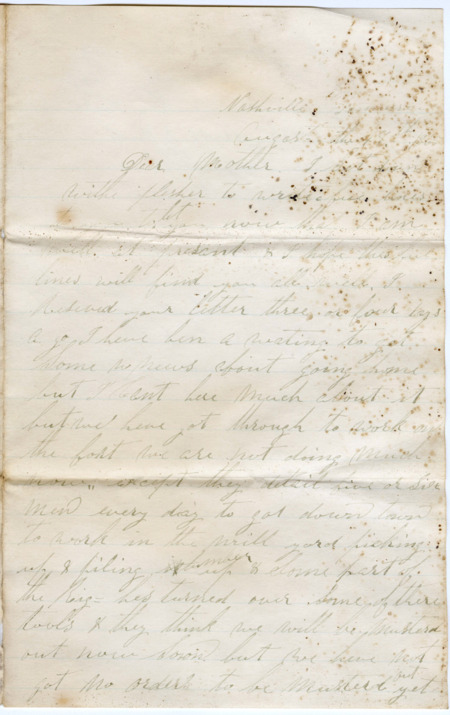 Nashville
August
Dear Mother I
with pleser to write
to let you now that I am
well at present & I hope this few
lines will find you all well I
Received your letter three or four days
a go I have ben a wating to get
home no news about going home
but I Cant here much about it
but we have got through to work on
the fort we are not doing much
now except they detail five or six
men every day to got down town
to work in the mill yard picking
up & piling up lumber & Some part of
the Reg= has turned over some of there
tools & they think we will be musterd
out now soon but we have not
got no orders to be Musterd out yet